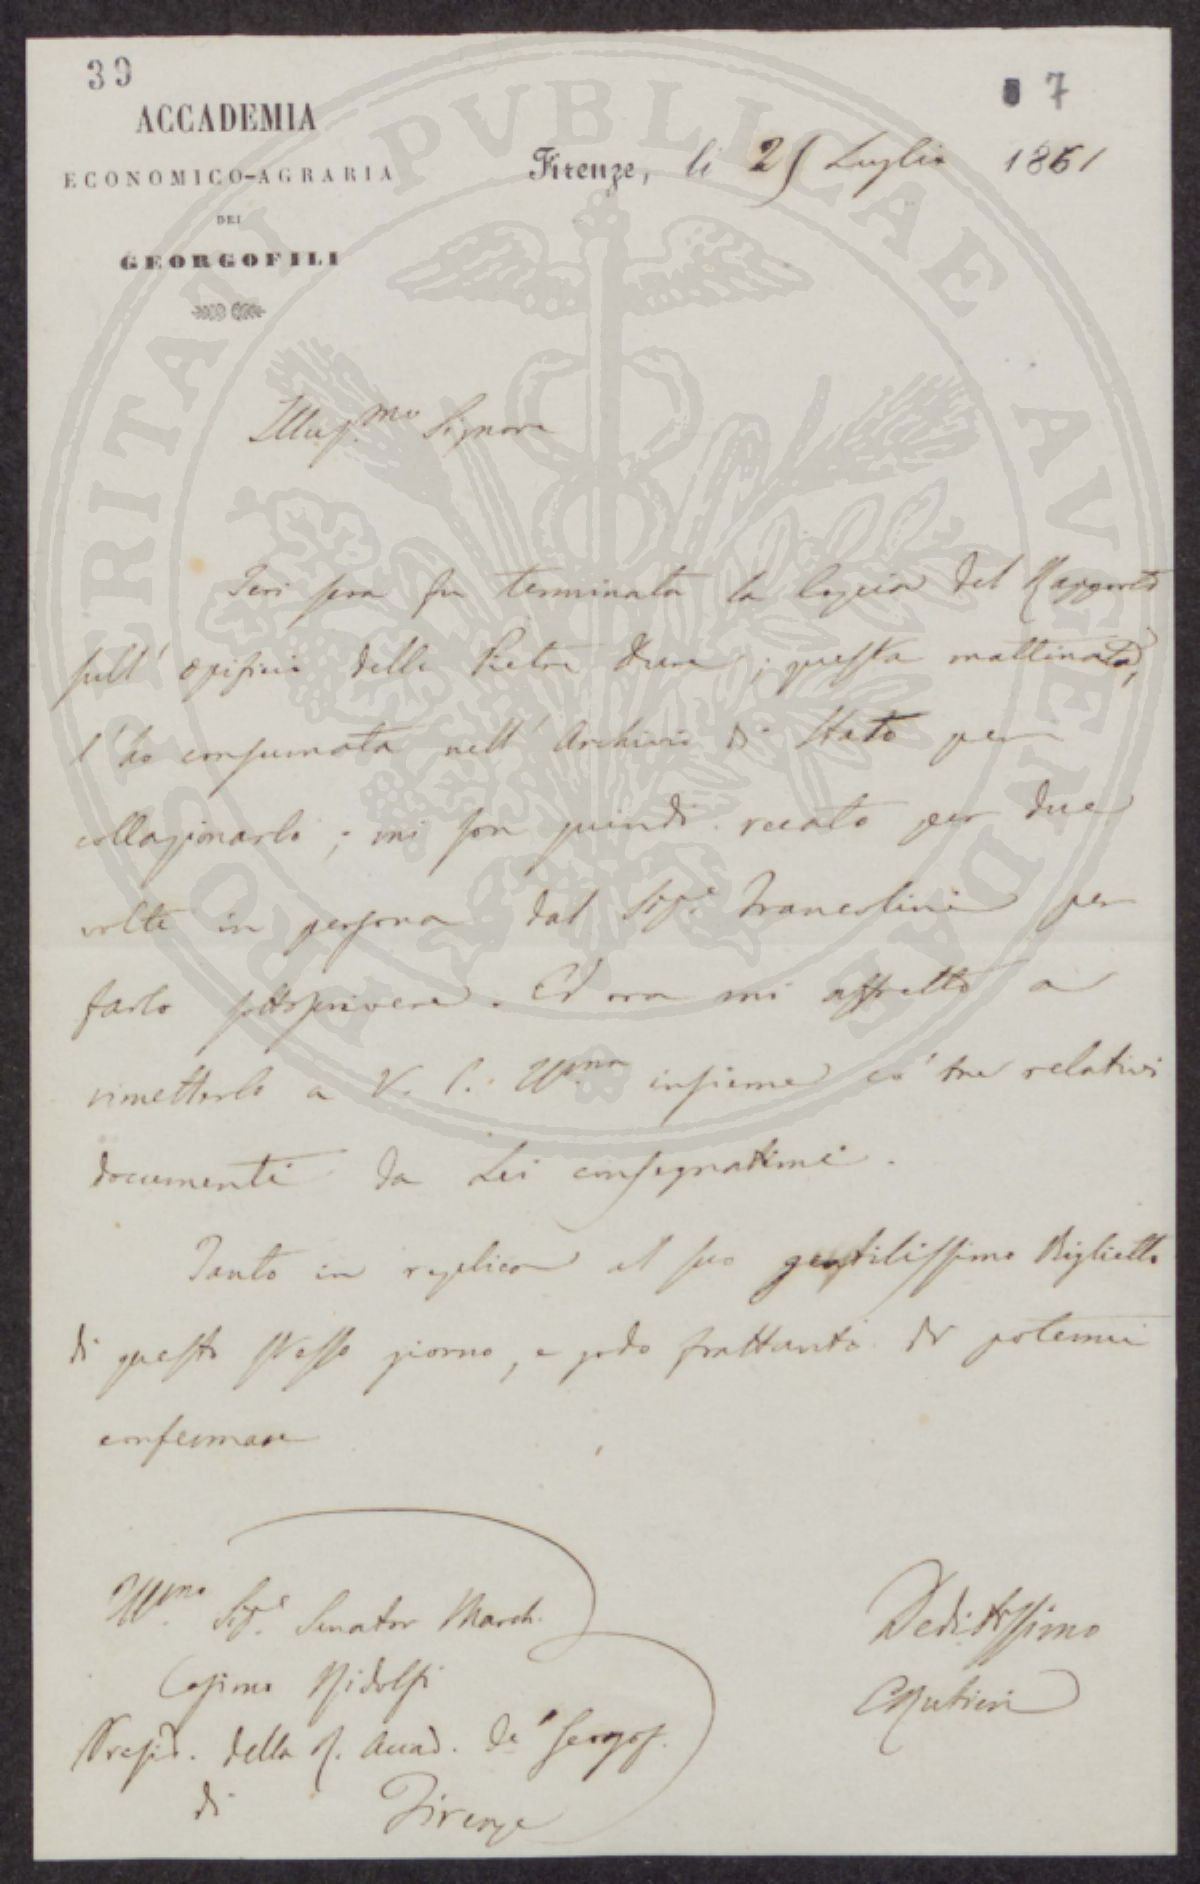 39
7
ACCADEMIA
ECONOMICO-AGRARIA
DEI
GEORGOFILI
Firenze, li 25 Luglio 1861
PROSPERITATI PVBLICAE AVGENDAE
Illus.mo Signore
Ieri sera fu terminata la copia del Rapporto
sull' opificio delle Pietre dure; questa mattinata,
l' ho consumata nell' Archivio di Stato per
collazionarlo; mi son quindi recato per due
volte in persona dal Sig.e Francolini per
farlo sottoscrivere. Ed ora mi affretto a
rimetterlo a V. S. Ill.ma insieme co' tre relativi
documenti da Lei consegnatimi.
Tanto in replica al suo gentilissimo Biglietto
di questo stesso giorno, e godo frattanto di potermi
confermare
Ill.mo Sig.e Senator March.
Cosimo Ridolfi
Presid. della R. Accad. de' Georgof.
di Firenze
Deditissimo